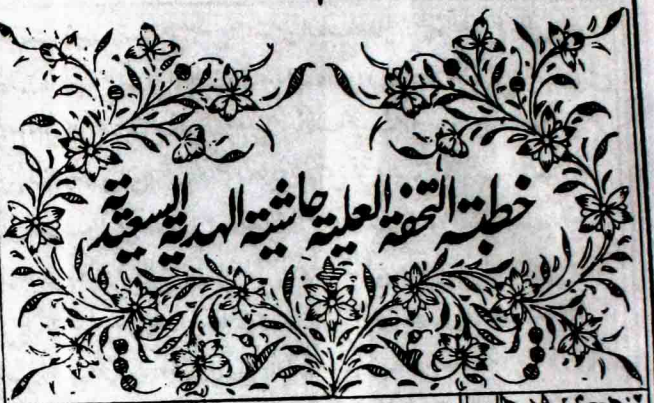 خطبة التحفة العلية حاشية الهدية السعيدية